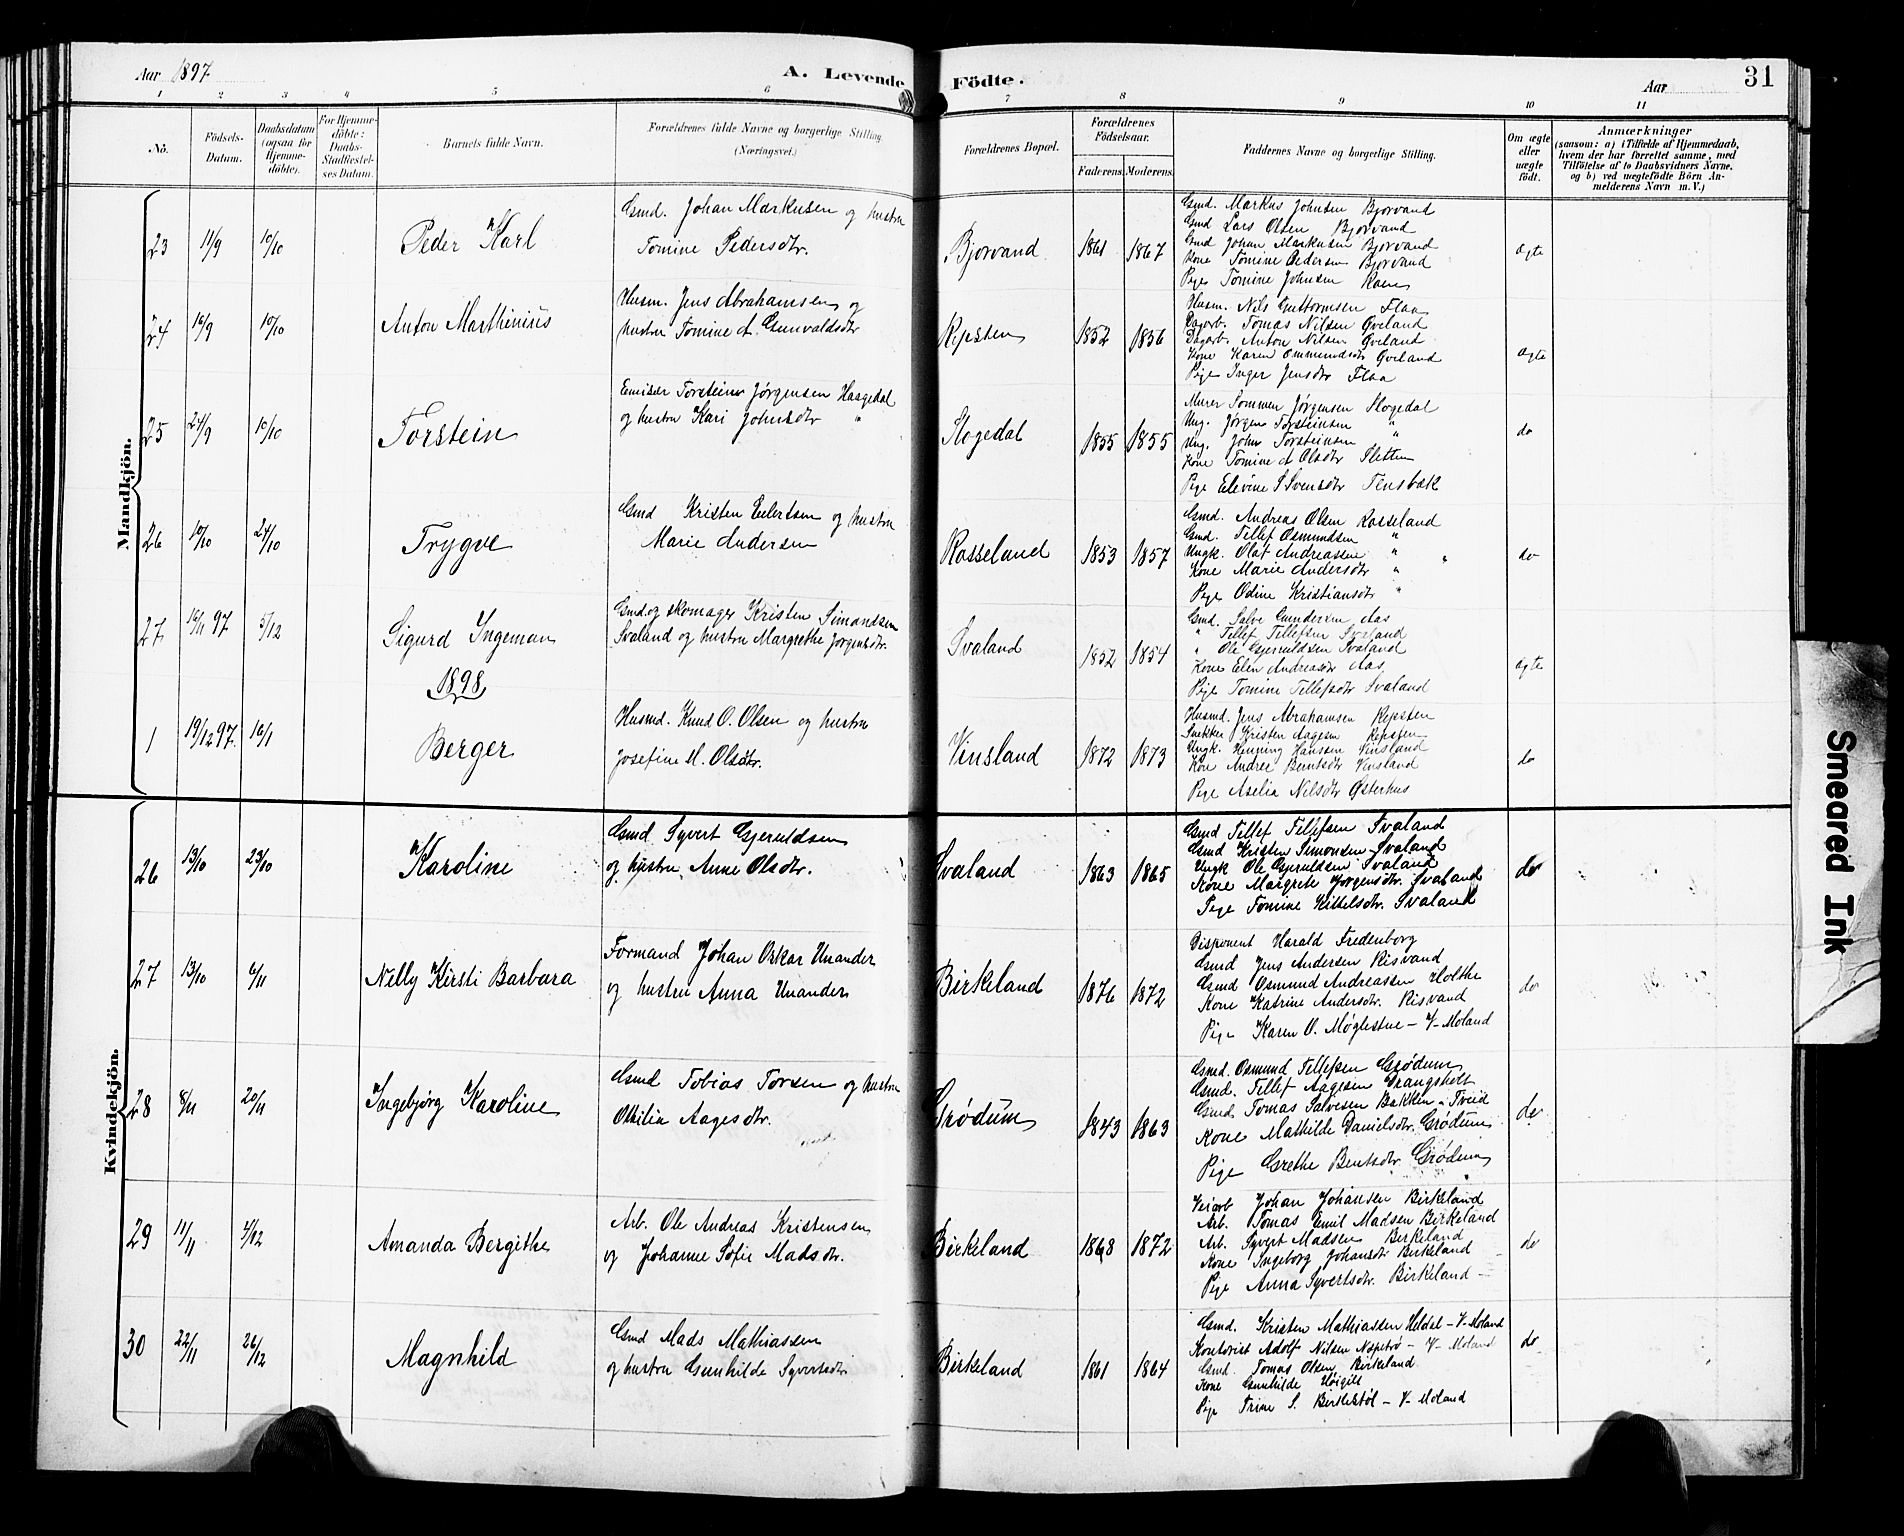 Aar 1897
A. Levende Födte.
Aar
31
1 2 3 4 5 6 7 8 9 10 11
No.
Födsels-Datum.
Daabsdatum (ogsaa for Hjemme-döbte).
For Hjemme-döbte: Daabs-Stadfæstel-ses Datum.
Barnets fulde Navn.
Forældrenes fulde Navne og borgerlige Stilling (Næringsvei.)
Forældrenes Bopæl.
Forældrenes Födselsaar.
Faderens. Moderens.
Faddernes Navne og borgerlige Stilling.
Om ægte eller uægte födt.
Anmærkninger
(saasom: a) i Tilfælde af Hjemmedaab, hvem der har forrettet samme, med Tilföielse af to Daabsvidners Navne, og b) ved uægtefödte Börn An-melderens Navn m. V.)
Mandkjön.
23 11/9 10/10 Peder Karl
Gmd. Johan Markusen og hustru
Tomine Pedersdtr.
Bjorvand 1861 1867
Gmd. Markus Johnsen Bjorvand
Gmd Lars Olsen Bjorvand
Gmd Johan Markusen Bjorvand
Kone Tomine Pedersen Bjorvand
Pige Tomine Johnsen
ægte
24 16/9 10/10 Anton Marthinius
Husm. Jens Abrahamsen og
hustru Tomine A. Gunvaldsdtr
Repsten 1852 1856
Husm. Nils Guttormsen Flaa
Dagarb. Tomas Nilsen Gveland
Dagarb. Anton Nilsen Gveland
Kone Karen Ommundsdtr Gveland
Pige Inger Jensdtr Flaa
ægte
25 24/9 10/10 Torstein
Emisær Torstein Jørgensen Haagedal
og hustru Kari Johnsdtr "
Stogedal 1855 1855
Murer Sommen Jørgensen Stogedal
Ung. Jørgen Torsteinsen "
Ung. John Torsteinsen "
Kone Tomine A Olsdtr Sletten
Pige Elevine S Svensdtr Tensbæk
do
26 10/10 24/10 Trygve
Gmd Kristen Eilertsen og hustru
Marie Andersen
Rosseland 1853 1857
Gmd. Andreas Olsen Rosseland
Gmd. Tellef Osmundsen "
Ungk. Olaf Andreassen " "
Kone Marie Andersdtr "
Pige Odine Kristiansdtr "
do
27 16/11 97 5/12 Sigurd Ingeman
Gmd. og skomager Kristen Simondsen
Svaland og hustru Margrethe Jørgensdtr.
Svaland 1852 1854
Gmd. Salve Gundersen Aas
" Tellef Tellefsen Svaland
" Ole Gjeruldsen Svaland
Kone Elen Andreasdtr Aas
Pige Tomine Tellefsdtr Svaland
ægte
1898
1 19/12 97. 16/1 Berger
Husmd. Knud O. Olsen og hustru
Josefine M. Olsdtr.
Vinsland 1872 1873
Husmd. Jens Abrahamsen Repsten
Snekker Kristen Aagesen Repsten
Ungk. Henning Hansen Vinsland
Kone Andrea Berntsdtr Vinsland
Pige Aselia Nilsdtr Østerhus
do
Kvindekjön.
26 13/10 23/10 Karoline
Gmd Syvert Gjeruldsen
og hustru Anne Olsdtr.
Svaland 1863 1865
Gmd Tellef Tellefsen Svaland
Gmd Kristen Simonsen Svaland
Ungk Ole Gjeruldsen Svaland
Kone Margrete Jørgensdtr. Svaland
Pige Tomine Kittelsdtr. Svaland
do
27 13/10 6/11 Nelly Kirsti Barbara
Formand Johan Oskar Unander
og hustru Anna Unander
Birkeland 1876 1872
Disponent Harald Fredenborg
Gmd Jens Andersen Risvand
Gmd Osmund Andreassen Holthe
Kone Katrine Andersdtr. Risvand
Pige Karen O. Møglestue - V-Moland
do
28 8/11 20/11 Ingebjørg Karoline
Gmd Tobias Torsen og hustru
Othilia Aagesdtr.
Grødum 1843 1863
Gmd. Osmund Tellefsen Grødum
Gmd. Tellef Aagesen Drangsholt
Gmd. Tomas Salvesen Bakken i Tveid
Kone Mathilde Danielsdtr. Grødum
Pige Grethe Bentsdtr Grødum
do
29 11/11 4/12 Amanda Bergithe
Arb. Ole Andreas Kristensen
og Johanne Sofie Madsdtr.
Birkeland 1868 1872
Veiarb Johan Johansen Birkeland
Arb. Tomas Emil Madsen Birkeland
Arb. Syvert Madsen Birkeland
Kone Ingeborg Johansdtr Birkeland
Pige Anna Syvertsdtr. Birkeland
do
30 22/11 26/12 Magnhild
Gmd Mads Mathiassen
og hustru Gunhilde Syvertsdtr
Birkeland 1861 1864
Gmd. Kristen Mathiassen Heldal - V-Moland
Kontorist Adolf Nilsen - V-Moland
Gmd. Tomas Olsen Birkeland
Kone Gunhilde Høigilt
Pige Trine S. Birkestøl - V-Moland
do
Smeared Ink